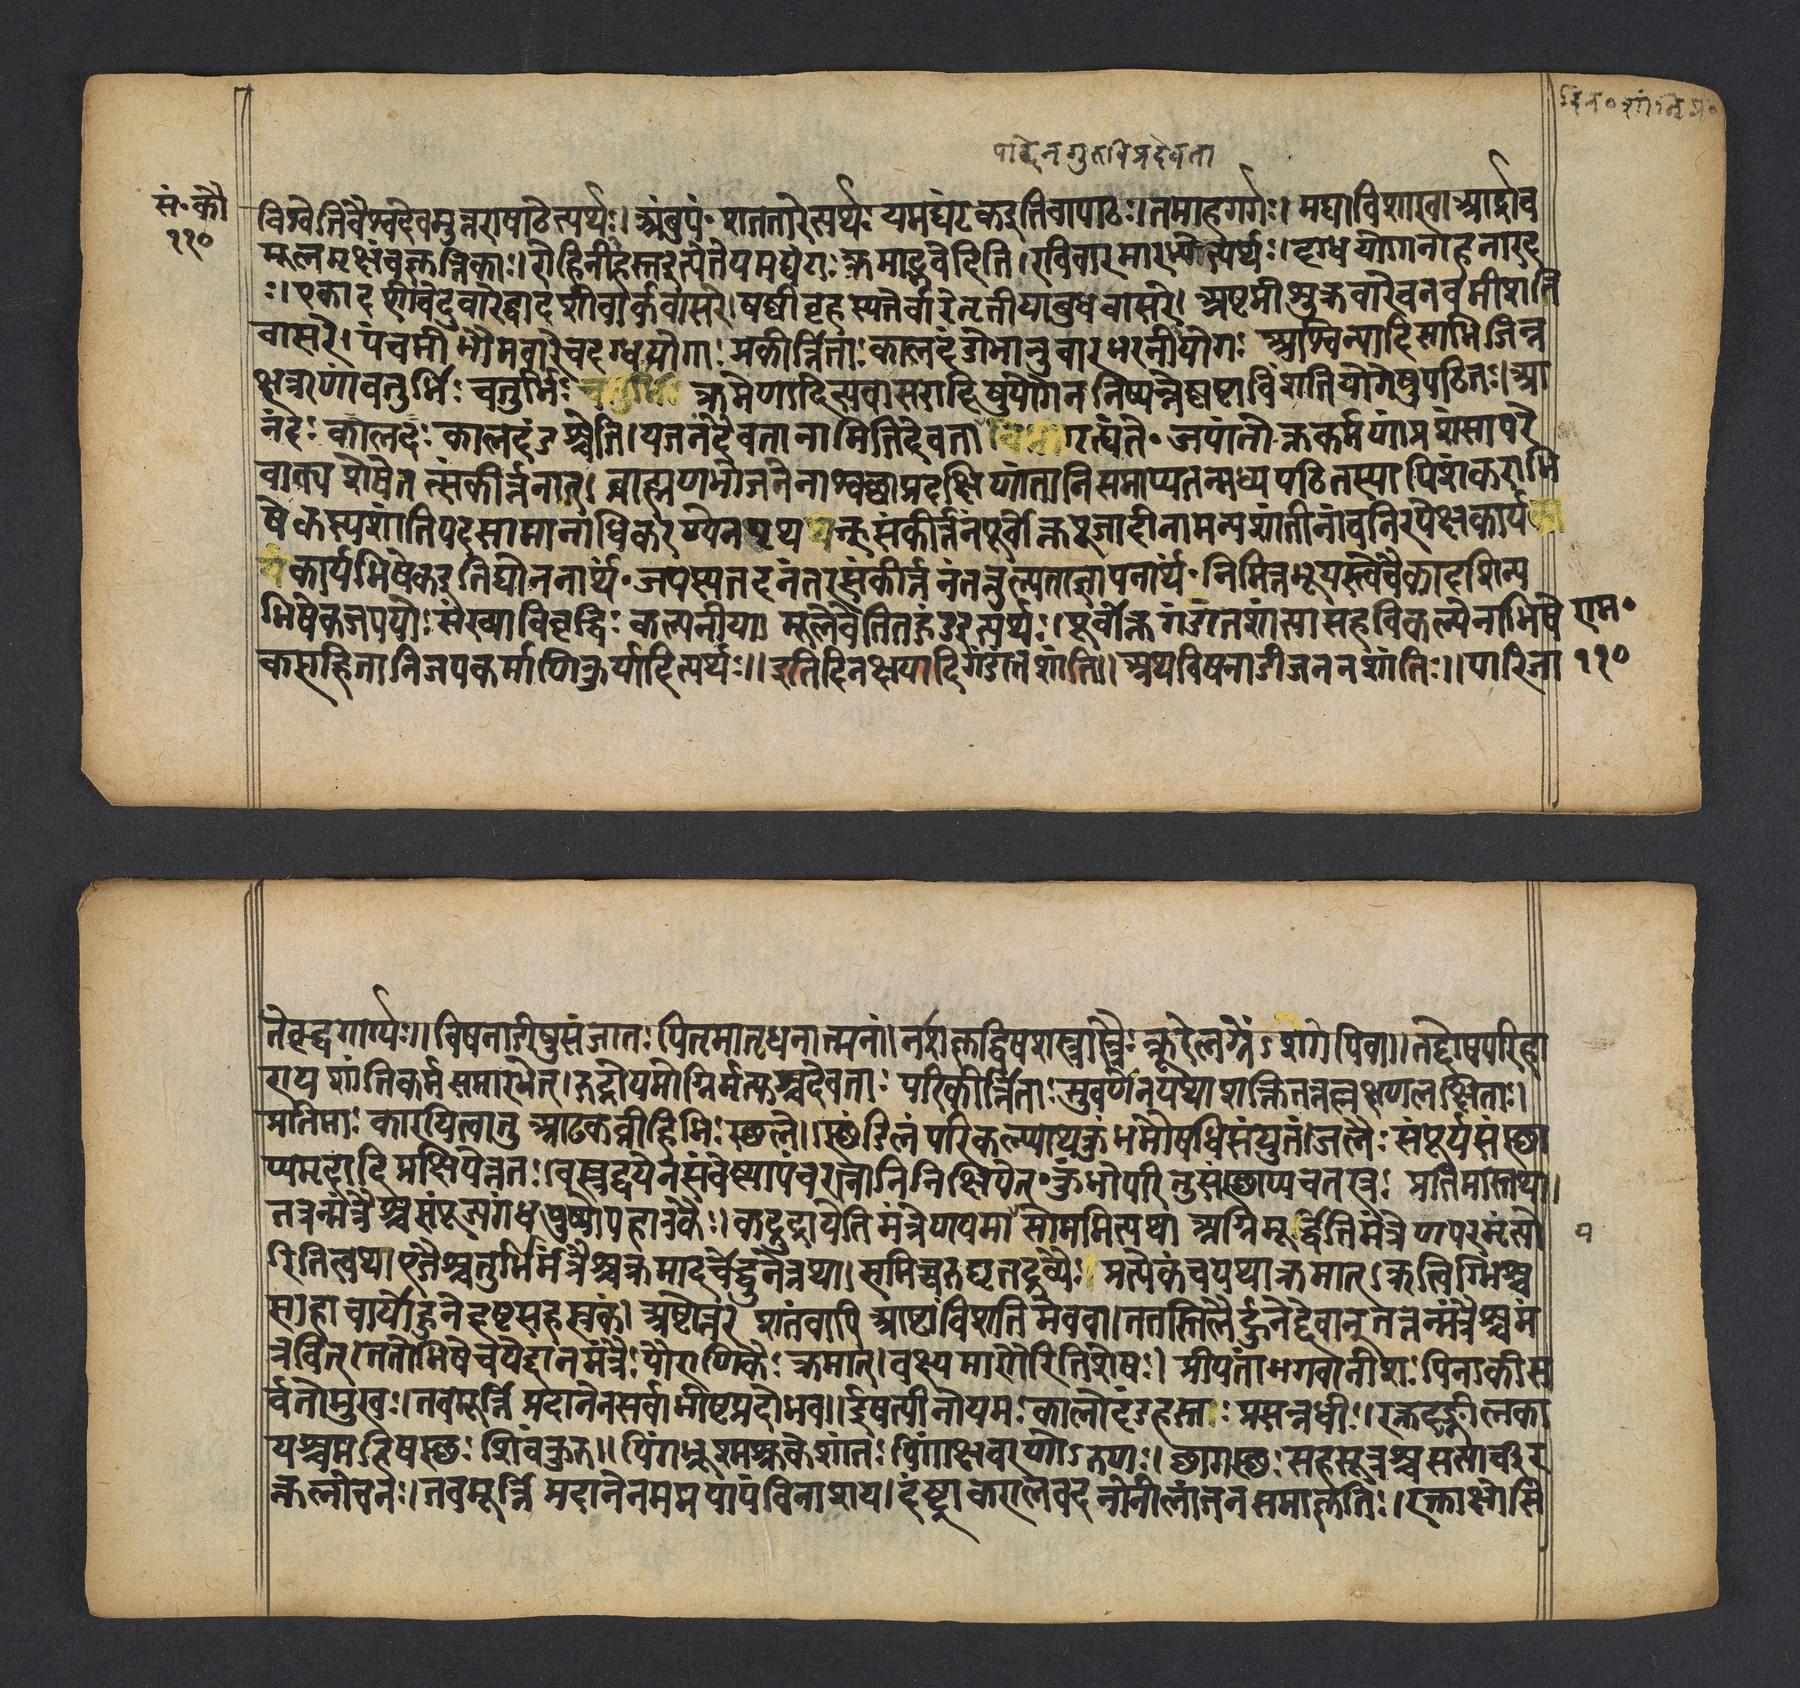 दिन० शां० वि० प्र०
पाद्येन गुरुविप्रदेवता
सं॰कौ
११०
विश्वेनिवैश्वदेवमुत्तराषाढेत्यर्थः। अंबुपं॰ शततारेत्यर्थः यमघंटकइतिवापाठः। तमाहगर्गः। मघाविशाखाआर्द्राच
मूलमृक्षंचकृत्तिकाः। रोहिनीहस्तइत्येतेयमघंगःक्रमाद्रवेरिति। रविवारमारभ्येत्यर्थः। दग्धयोगानाहनारद
ः। एकादशीचेंदुवारेद्वादशीचार्कवासरे। षष्ठीवृहस्पतेर्वारेतृतीयाबुधवासरे। अष्टमीशुक्रवारेचनवमीशनि
वासरे। पंचमीभौमवारेचदग्धयोगाःप्रकीर्त्तिताः कालदंडोभानुवारभरनीयोगः आश्विन्यादिसाभिजिन्न
क्षत्राणांचतुर्भिः चतुर्भिः क्रमेणादित्यवासरादिषुयोगेननिष्पन्नेष्वष्टाविंशतियोगेषुपठितः। आ
नंदः कालदंः कालदंडश्चेति। यजनंदेवतानामितिदेवता गत्यंते॰ जपांतोक्तकर्मणांप्रशंसापरै
वाक्यशेषेतत्संकीर्त्तनात्। ब्राह्मणभोजनेनाश्वत्थप्रदक्षिणांतानिसमाप्यतन्मध्यपठितस्यापिशंकराभि
षेकस्यशांतिपदसामानाधिकरण्येनपृथक्संकीर्त्तनंपूर्वोक्तपूजादीनामन्यशांतीनांचनिरपेक्षकार्य
कार्यभिषेकइतिद्योतनार्थं॰ जपस्यतदनंतरसंकीर्त्तनंतत्तुल्यताज्ञापनार्थं॰ निमित्तभूयस्त्वेचैकादशिन्य
भिषेकजपयोः संख्याविवृद्धिः कल्पनीया मूलेचेतितद्गंडइत्यर्थः। पूर्वोक्तगंडांतशांत्यासहविकल्पेनाभिषे
कसहितानिजपकर्माणिकुर्यादित्यर्थः॥ इतिदिनक्षयादिगंडांतशांति॥ अथविषनाडीजननशांतिः॥ पारिजा
राम॰
११०
तेवृद्धगार्ग्यः॥ विषनाडीषुसंजातः पितृमातृधनात्मनां। नशकृद्विषशस्त्रास्त्रैः क्रूरेलग्नेंऽशगेपिवा॥ तद्दोषपरिहा
रायशांतिकर्मसमारभेत्। रुद्रोयमोग्निर्मृत्युश्चदेवताः परिकीर्त्तिताः सुवर्णेनयथाशक्तितत्तल्लक्षणलक्षिताः।
प्रतिमाः कारयित्वातु आढकव्रीहिभिः स्थले॥ स्थंडिलंपरिकल्प्याथकुंभमौषधिसंयुतं। जलैः संपूर्यसंस्था
प्यमृदादिप्रक्षिपेत्ततः। वस्त्रद्वयेनसंवेष्ट्यापंचरत्नानिनिक्षिपेत्॰ कुंभोपरितुसंस्थाप्यचतस्त्रः प्रतिमास्तथा।
तत्तन्मंत्रैश्चसंपूज्यगंधपुष्पोपहारकैः। कद्रुद्रायेतिमंत्रेणयमायसोममित्यथा अग्निमूर्द्धेतिमंत्रेणपरंमृत्यो
रितित्वथा एतैश्चतुर्भिर्मंत्रैश्चक्रमादर्चेद्धुनेत्तथा। समिच्चरुघृतद्रव्यैः प्रत्येकंचयथाक्रमात्। ऋत्विग्भिश्च
सहाचार्योहुनेदष्टसहस्त्रकं। अष्टोत्तरशतंवापि अष्टाविंशतिमेववा। ततस्तिलैर्हुनेद्देवान्तत्तन्मंत्रैश्चमं
त्रवित् ततोभिषेचयेद्दानमंत्रैः पौराणिकैः क्रमात्। वक्ष्यमाणैरितिशेषः। प्रीयतांभगवानीशः पिनाकीस
र्वतोमुखः। तवमूर्त्तिप्रदानेनसर्वाभीष्टप्रदोभव॥ ईषत्पीनोयमः कालोदंडहस्तः प्रसन्नधीः। रक्तदृङ्नीलका
यश्चमहिषस्थः शिवंकुरु॥ पिंगभ्रूश्मश्रुकेशांतः पिंगाक्षवारणोऽरुणः। छागस्थः सहसूत्रश्चसप्तार्चिर
क्तलोचनः। तवमूर्त्तिप्रदानेनममपापंविनाशय। दंष्ट्राकरालवदनोनीलांजनसमाकृतिः। रक्ताक्षोसि